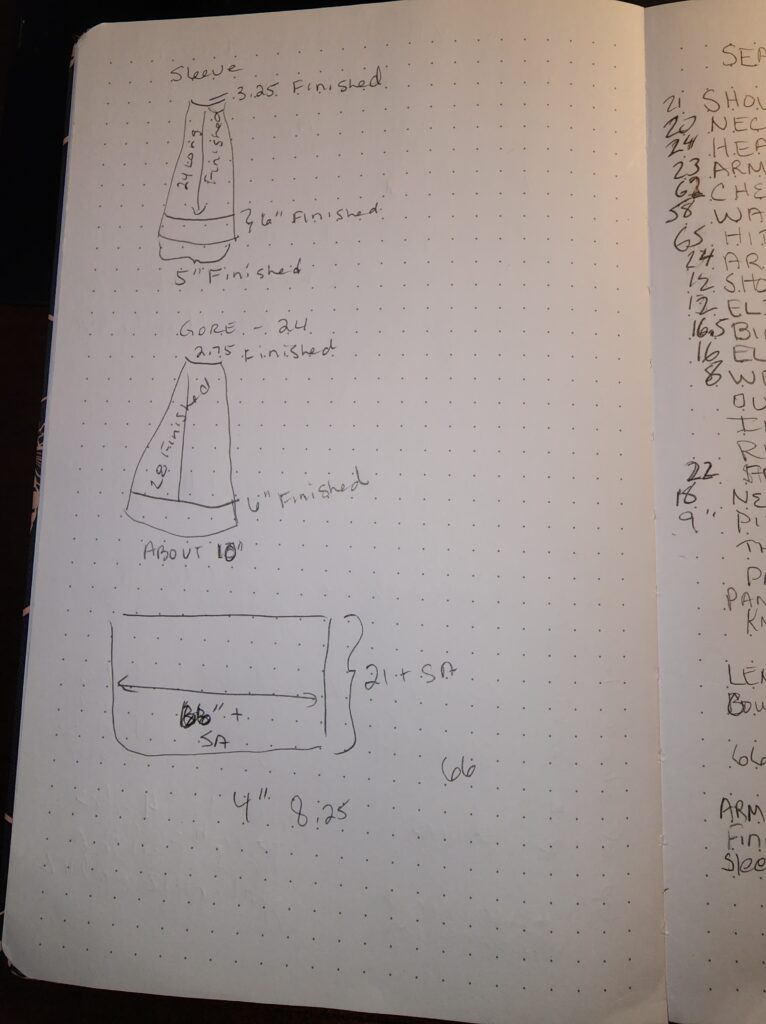 Sleeve
3.25 Finished
24 Long
Finished
6" Finished
5" Finished
GORE - 24
2.75 Finished
28 Finished
6" Finished
ABOUT 10"
21 + SA
" +
SA
66
4" 8.25
SEA
21 SHOU
20 NEC
24 HEA
23 ARM
62 CHE
58 WA
65 HI
24 AR
12 SHO
12 EL
16.5 BI
16 EL
8 W
OU
22
18 NE
9" PI
PAN
KN
LEN
BOW
66
ARM
Fin
Slee